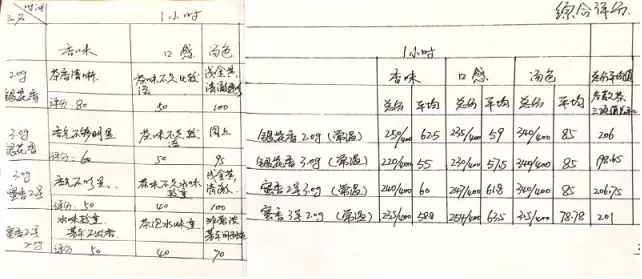 时间
1小时
香味
口感
汤色
2.0g
银花香
茶香清晰
茶味不足比较淡
浅金黄,
清澈
评分: 80
50
100
3.0g
银花香
香气不够明显
茶味不足较淡
同上
评分: 60
50
95
3.0g
蜜香2号
香气不明显
茶味不足水味较重
浅金黄,
清澈
评分: 50
40
100
蜜香2号
2g
水味较重
茶香不明显
茶淡水味重
评分: 50
40
70
综合评分
1小时
香味
口感
汤色
总分
平均
总分
平均
总分
平均
总分平均值
银花香 2.0g (常温)
250/400
62.5
235/400
59
340/400
85
206
银花香 3.0g (常温)
220/400
55
230/400
57.5
340/400
85
198.65
蜜香2号 3.0g (常温)
240/400
60
247/400
61.8
340/400
85
206.75
蜜香3号 2.0g (常温)
235/400
58.8
254/400
63.5
315/400
78.78
201